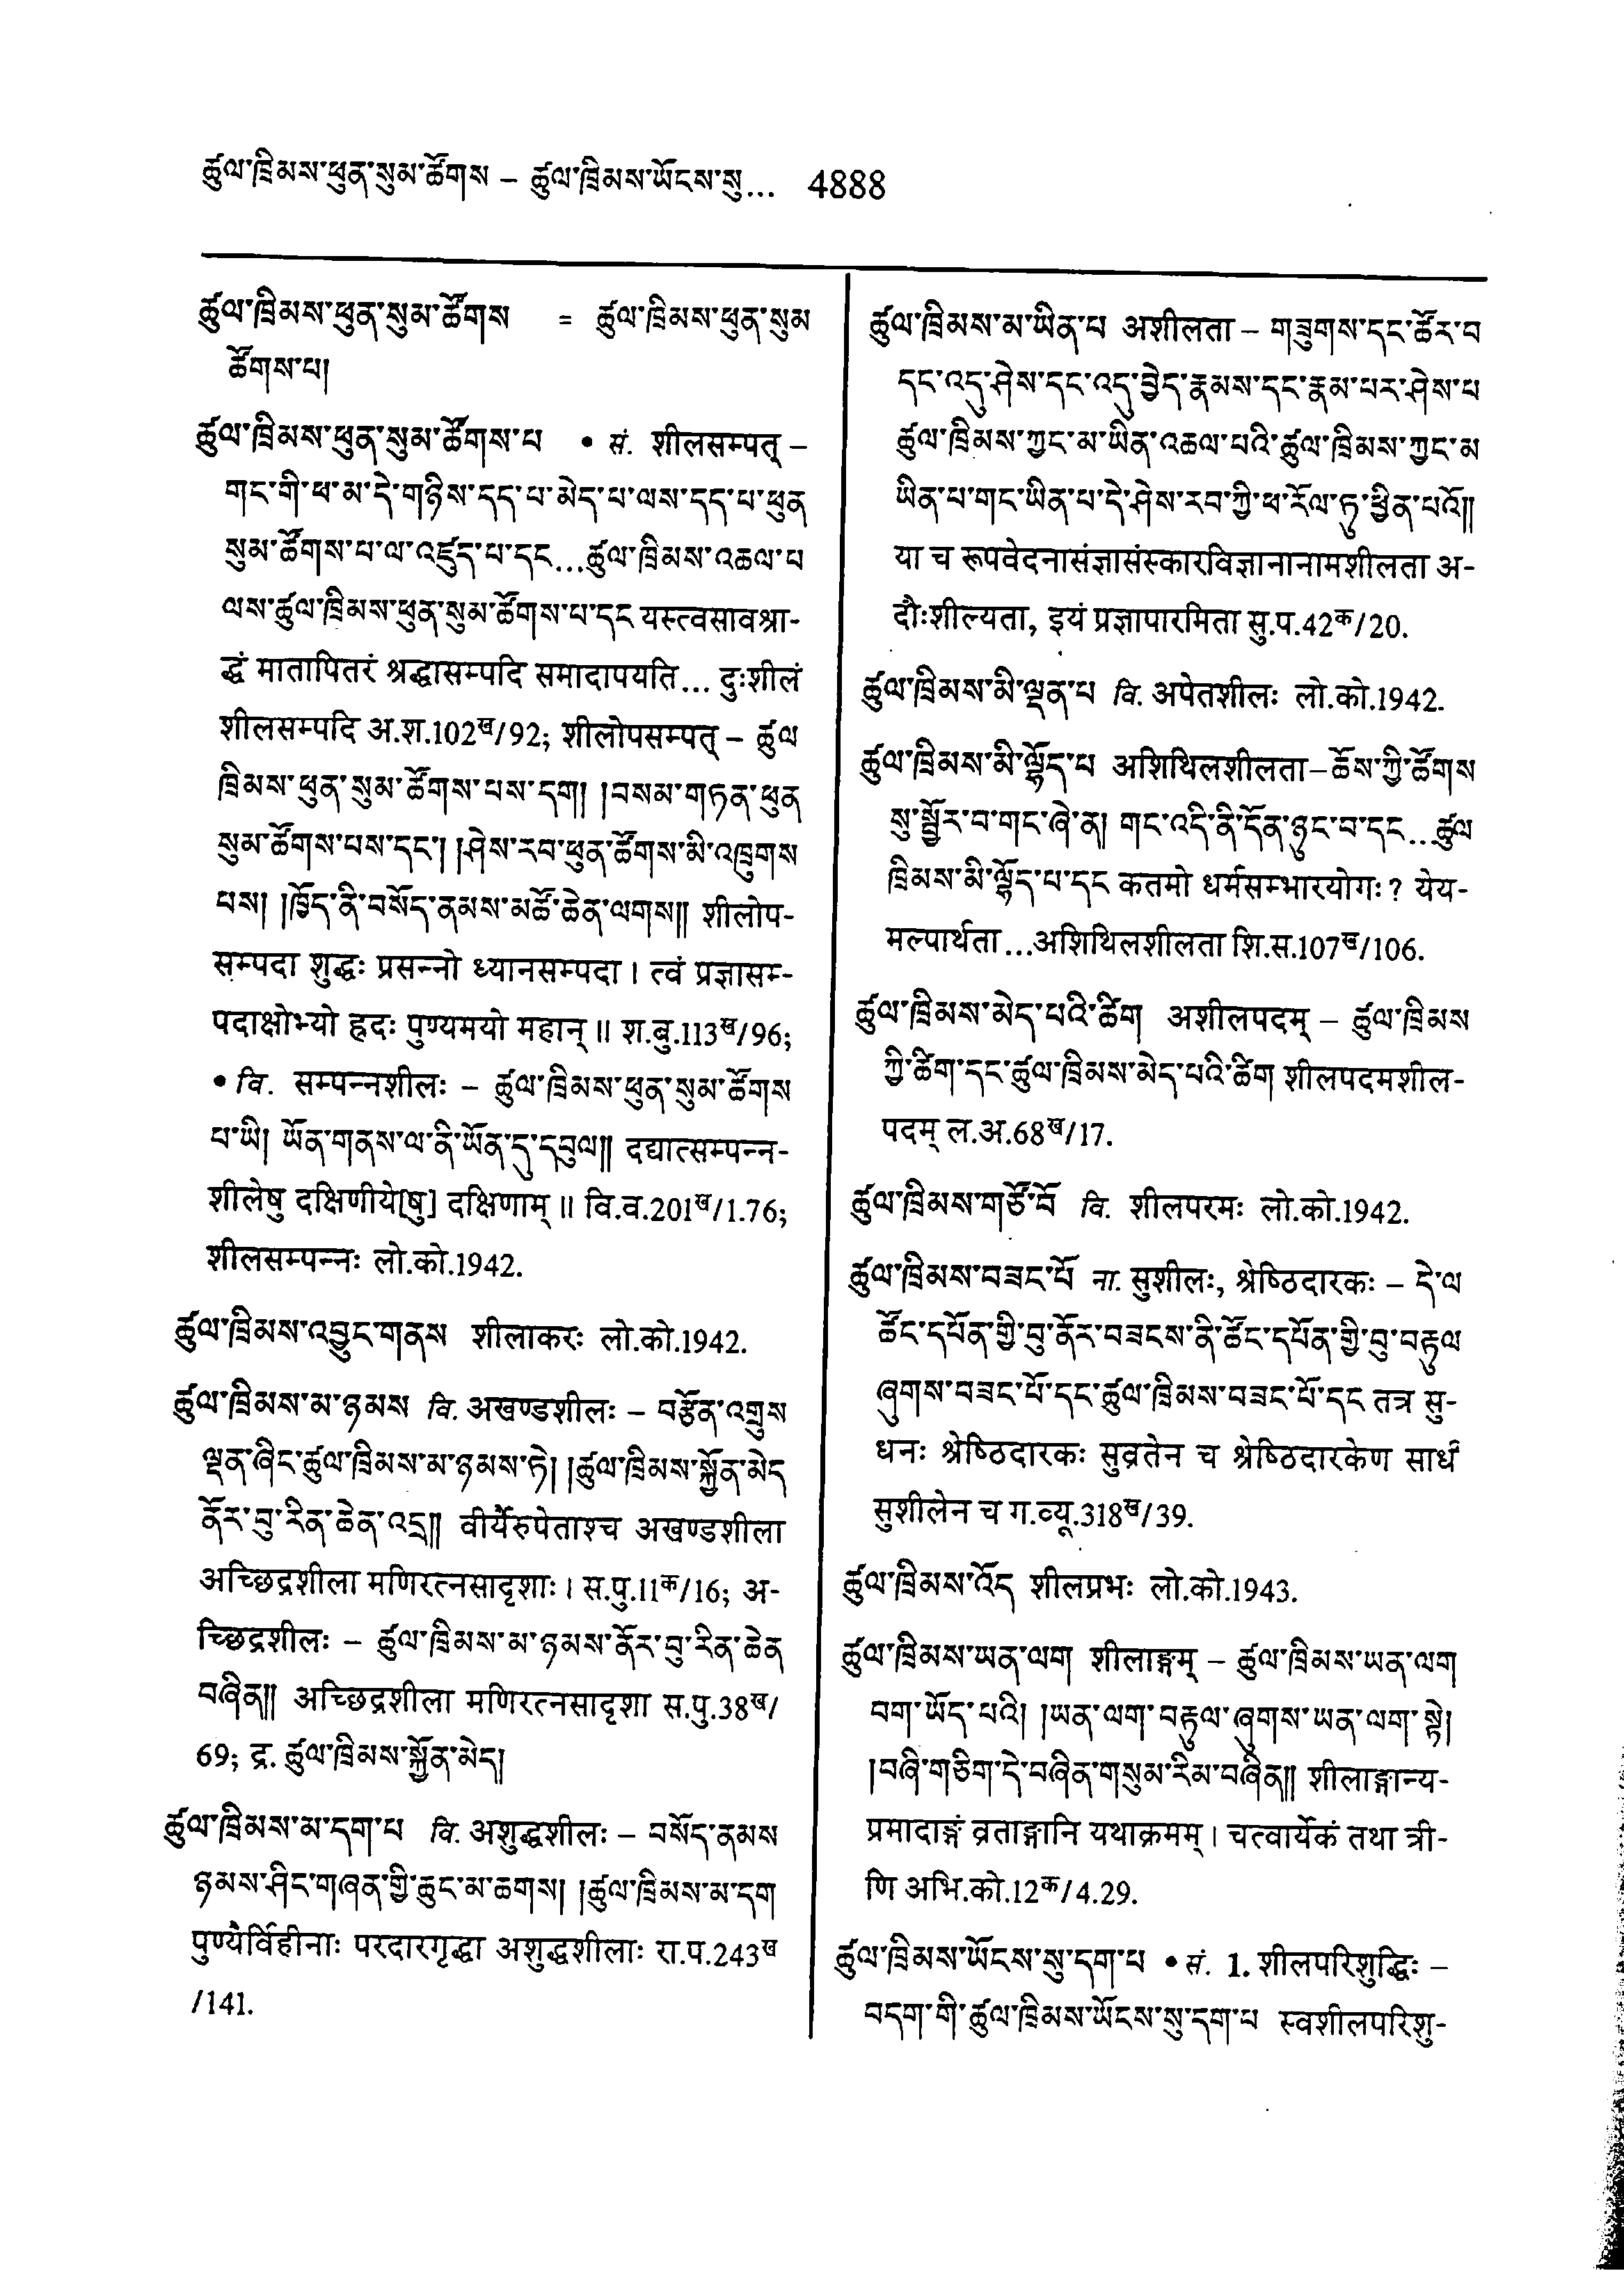 ཚུལ་ཁྲིམས་ཕུན་སུམ་ཚོགས – ཚུལ་ཁྲིམས་ཡོངས་སུ... 4888
ཚུལ་ཁྲིམས་ཕུན་སུམ་ཚོགས = ཚུལ་ཁྲིམས་ཕུན་སུམ
ཚོགས་པ།
ཚུལ་ཁྲིམས་ཕུན་སུམ་ཚོགས་པ • सं. शीलसम्पत् –
གང་གི་ཕ་མ་དེ་གཉིས་དད་པ་མེད་པ་ལས་དད་པ་ཕུན
སུམ་ཚོགས་པ་ལ་འཛུད་པ་དང...ཚུལ་ཁྲིམས་འཆལ་པ
ལས་ཚུལ་ཁྲིམས་ཕུན་སུམ་ཚོགས་པ་དང यस्त्वसावश्रा-
द्धं मातापितरं श्रद्धासम्पदि समादापयति... दुःशीलं
शीलसम्पदि अ.श.102ख/92; शीलोपसम्पत् – ཚུལ
ཁྲིམས་ཕུན་སུམ་ཚོགས་པས་དག། །བསམ་གཏན་ཕུན
སུམ་ཚོགས་པས་དང་། །ཤེས་རབ་ཕུན་ཚོགས་མི་འཁྲུགས
པས། །ཁྱོད་ནི་བསོད་ནམས་མཚོ་ཆེན་ལགས།། शीलोप-
सम्पदा शुद्धः प्रसन्नो ध्यानसम्पदा । त्वं प्रज्ञासम्-
पदाक्षोभ्यो ह्रदः पुण्यमयो महान् ॥ श.बु.113ख/96;
• वि. सम्पन्नशीलः – ཚུལ་ཁྲིམས་ཕུན་སུམ་ཚོགས
པ་ཡི། ཡོན་གནས་ལ་ནི་ཡོན་དུ་དབུལ།། दद्यात्सम्पन्न-
शीलेषु दक्षिणीये[षु] दक्षिणाम् ॥ वि.व.201ख/1.76;
शीलसम्पन्नः लो.को.1942.
ཚུལ་ཁྲིམས་འབྱུང་གནས शीलाकरः लो.को.1942.
ཚུལ་ཁྲིམས་མ་ཉམས वि. अखण्डशीलः – བརྩོན་འགྲུས
ལྡན་ཞིང་ཚུལ་ཁྲིམས་མ་ཉམས་ཏེ། །ཚུལ་ཁྲིམས་སྐྱོན་མེད
ནོར་བུ་རིན་ཆེན་འདྲ།། वीर्यैरुपेताश्च अखण्डशीला
अच्छिद्रशीला मणिरत्नसादृशाः । स.पु.11क/16; अ-
च्छिद्रशीलः – ཚུལ་ཁྲིམས་མ་ཉམས་ནོར་བུ་རིན་ཆེན
བཞིན།། अच्छिद्रशीला मणिरत्नसादृशा स.पु.38ख/
69; द्र. ཚུལ་ཁྲིམས་སྐྱོན་མེད།
ཚུལ་ཁྲིམས་མ་དག་པ वि. अशुद्धशीलः – བསོད་ནམས
ཉམས་ཤིང་གཞན་གྱི་ཆུང་མ་ཆགས། །ཚུལ་ཁྲིམས་མ་དག
पुण्यैर्विहीनाः परदारगृद्धा अशुद्धशीलाः रा.प.243ख
/141.
ཚུལ་ཁྲིམས་མ་ཡིན་པ अशीलता – གཟུགས་དང་ཚོར་བ
དང་འདུ་ཤེས་དང་འདུ་བྱེད་རྣམས་དང་རྣམ་པར་ཤེས་པ
ཚུལ་ཁྲིམས་ཀྱང་མ་ཡིན་འཆལ་པའི་ཚུལ་ཁྲིམས་ཀྱང་མ
ཡིན་པ་གང་ཡིན་པ་དེ་ཤེས་རབ་ཀྱི་ཕ་རོལ་ཏུ་ཕྱིན་པའོ།།
या च रूपवेदनासंज्ञासंस्कारविज्ञानानामशीलता अ-
दौःशील्यता, इयं प्रज्ञापारमिता सु.प.42क/20.
ཚུལ་ཁྲིམས་མི་ལྡན་པ वि. अपेतशीलः लो.को.1942.
ཚུལ་ཁྲིམས་མི་ལྷོད་པ अशिथिलशीलता–ཆོས་ཀྱི་ཚོགས
སུ་སྦྱོར་བ་གང་ཞེ་ན། གང་འདི་ནི་དོན་ཉུང་བ་དང...ཚུལ
ཁྲིམས་མི་ལྷོད་པ་དང कतमो धर्मसम्भारयोगः? येय-
मल्पार्थता...अशिथिलशीलता शि.स.107ख/106.
ཚུལ་ཁྲིམས་མེད་པའི་ཚིག अशीलपदम् – ཚུལ་ཁྲིམས
ཀྱི་ཚིག་དང་ཚུལ་ཁྲིམས་མེད་པའི་ཚིག शीलपदमशील-
पदम् ल.अ.68ख/17.
ཚུལ་ཁྲིམས་གཙོ་བོ वि. शीलपरमः लो.को.1942.
ཚུལ་ཁྲིམས་བཟང་པོ ना. सुशीलः, श्रेष्ठिदारकः – དེ་ལ
ཚོང་དཔོན་གྱི་བུ་ནོར་བཟངས་ནི་ཚོང་དཔོན་གྱི་བུ་བརྟུལ
ཞུགས་བཟང་པོ་དང་ཚུལ་ཁྲིམས་བཟང་པོ་དང तत्र सु-
धनः श्रेष्ठिदारकः सुव्रतेन च श्रेष्ठिदारकेण सार्धं
सुशीलेन च ग.व्यू.318ख/39.
ཚུལ་ཁྲིམས་འོད शीलप्रभः लो.को.1943.
ཚུལ་ཁྲིམས་ཡན་ལག शीलाङ्गम् – ཚུལ་ཁྲིམས་ཡན་ལག
བག་ཡོད་པའི། །ཡན་ལག་བརྟུལ་ཞུགས་ཡན་ལག་སྟེ།
།བཞི་གཅིག་དེ་བཞིན་གསུམ་རིམ་བཞིན།། शीलाङ्गान्य-
प्रमादाङ्गं व्रताङ्गानि यथाक्रमम् । चत्वार्येकं तथा त्री-
णि अभि.को.12क/4.29.
ཚུལ་ཁྲིམས་ཡོངས་སུ་དག་པ • सं. 1. शीलपरिशुद्धिः –
བདག་གི་ཚུལ་ཁྲིམས་ཡོངས་སུ་དག་པ स्वशीलपरिशु-